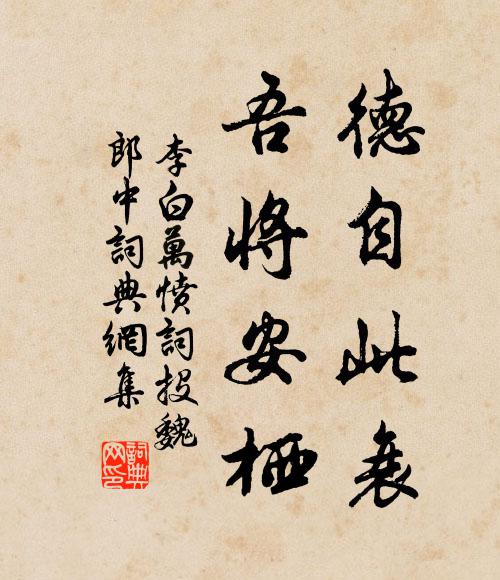 德自此衰
吾將安栖
李白萬憤詞投魏
郎中詞典網集
詞典
网印